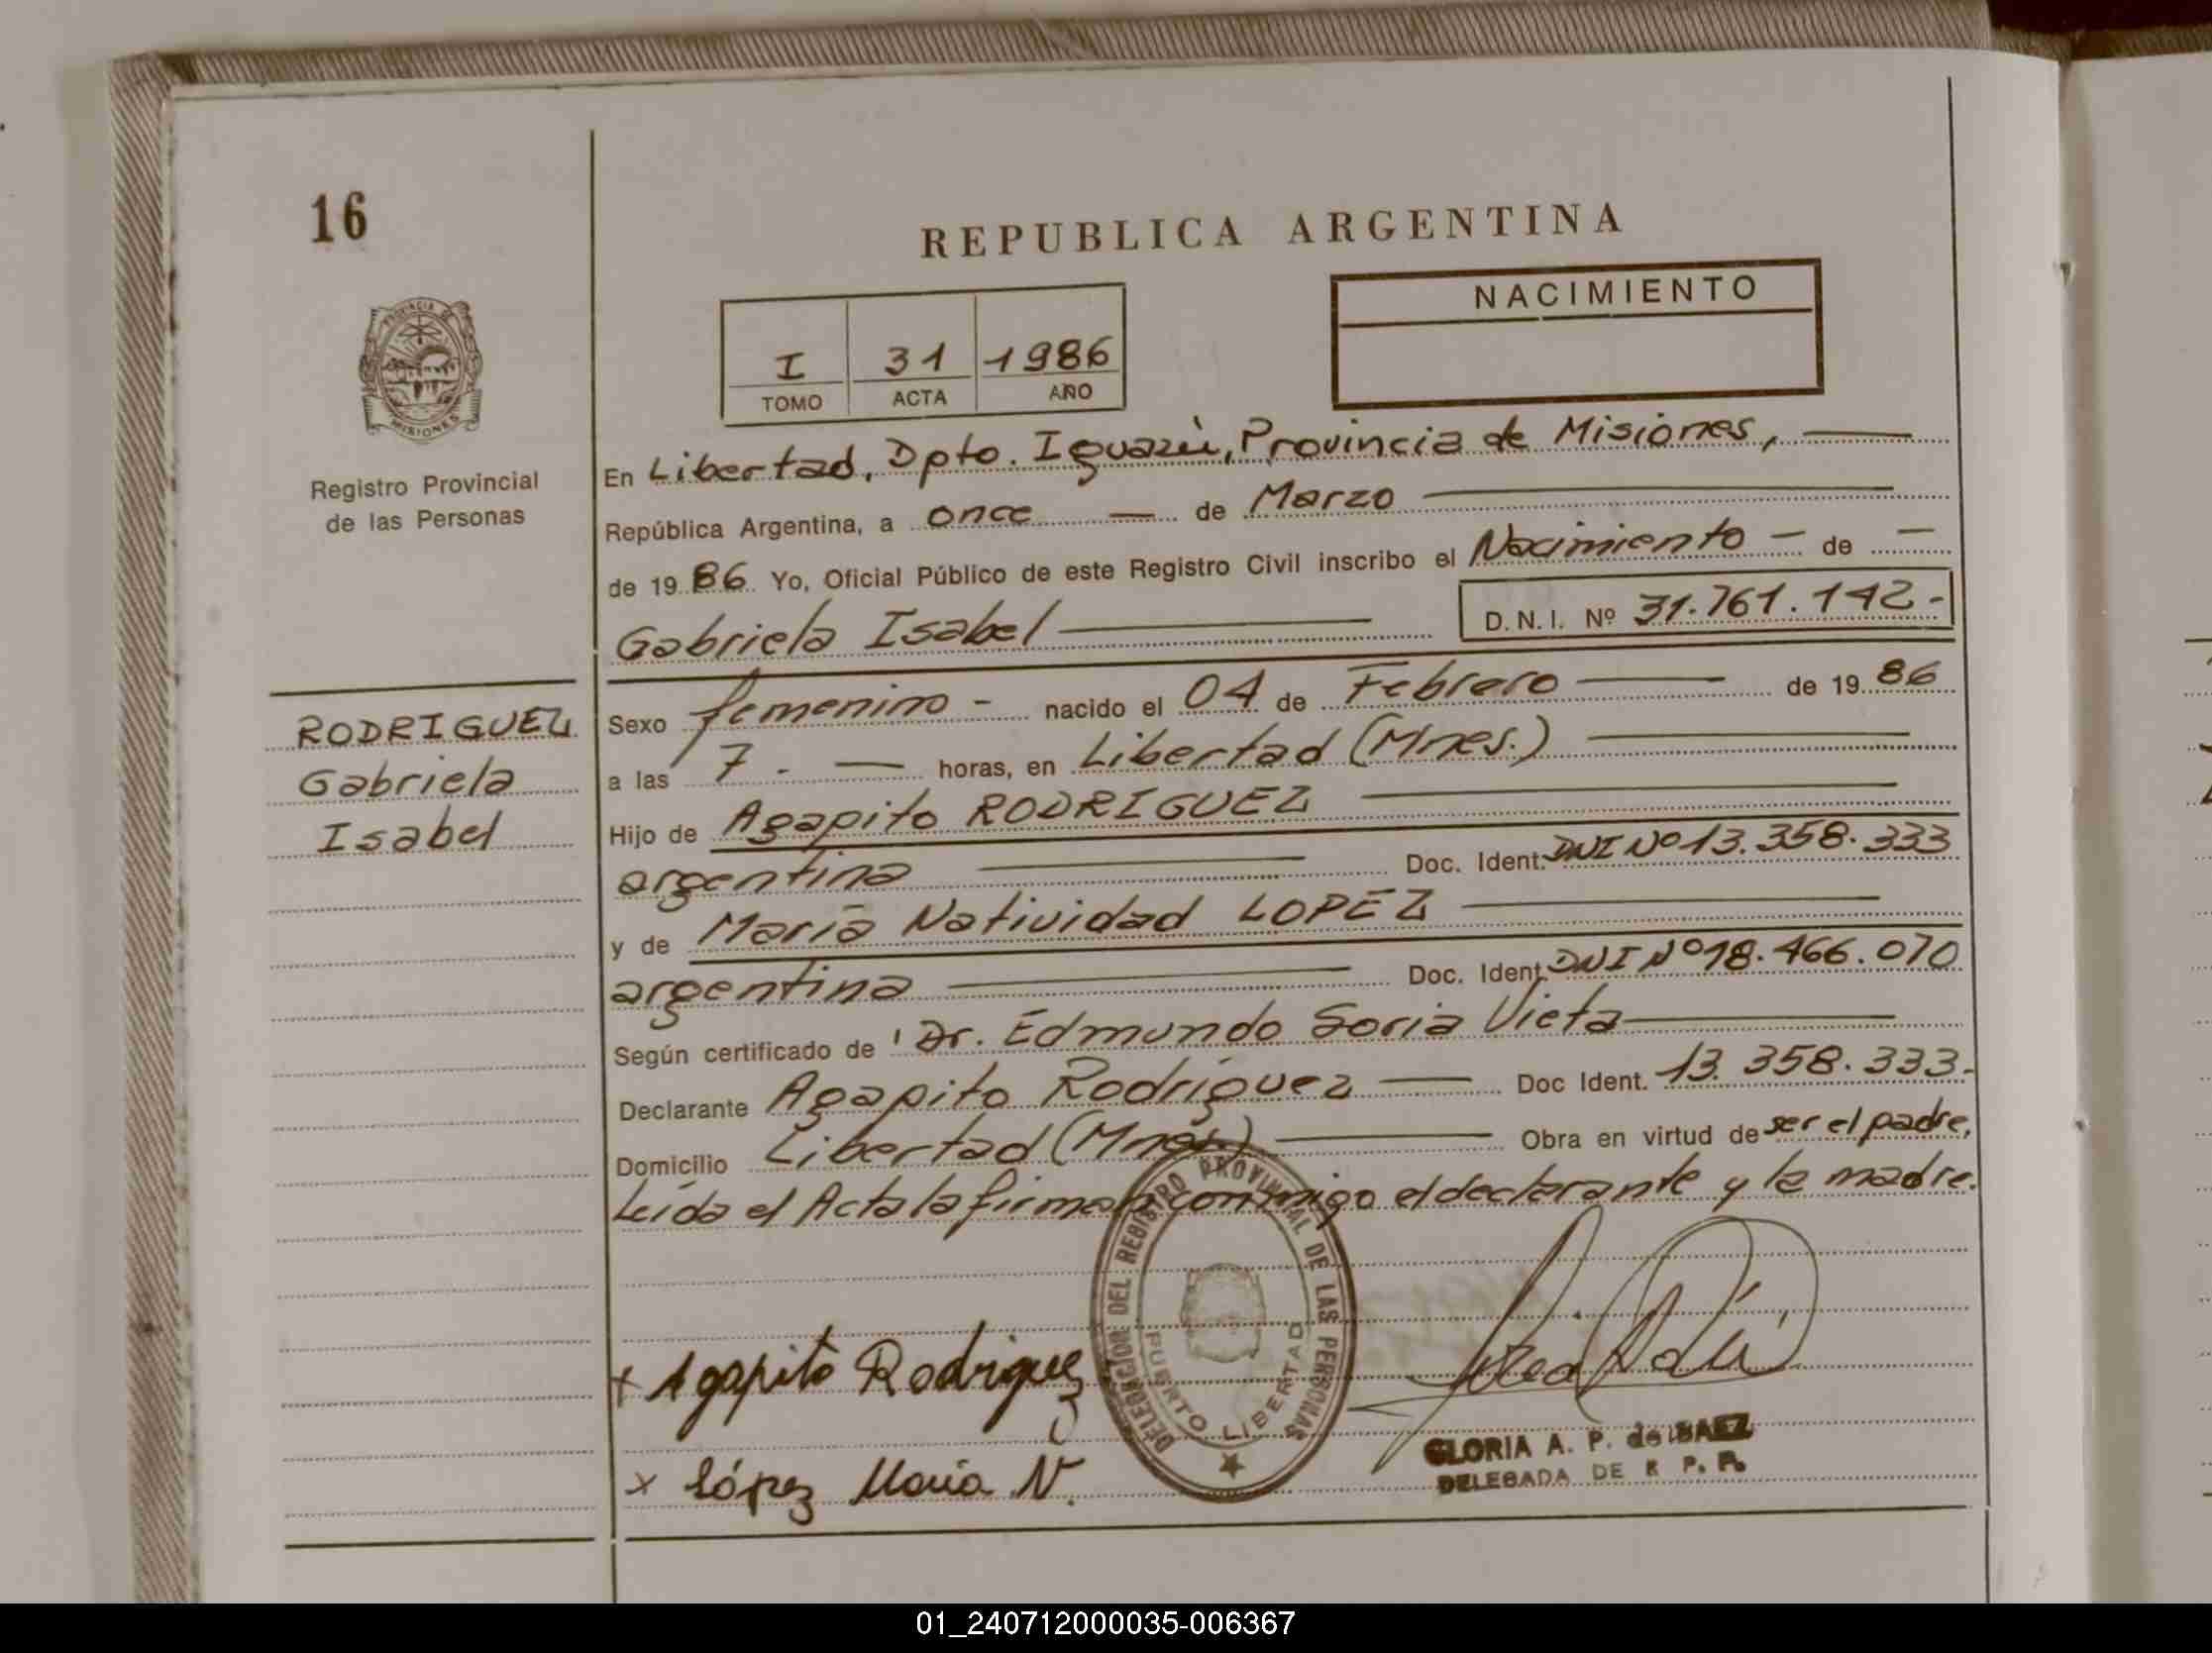 16
REPUBLICA ARGENTINA
NACIMIENTO
I 31 1986
TOMO ACTA AÑO
PROVINCIA DE MISIONES
Registro Provincial
de las Personas
En Libertad, Dpto. Iguazú, Provincia de Misiones,
República Argentina, a once de Marzo
de 1986 Yo, Oficial Público de este Registro Civil inscribo el Nacimiento - de -
Gabriela Isabel D.N.I. Nº 31.761.142.-
RODRIGUEZ
Gabriela
Isabel
Sexo femenino - nacido el 04 de Febrero de 1986
a las 7 . - horas, en Libertad (Mnes.)
Hijo de Agapito RODRIGUEZ
argentina Doc. Ident. DNI Nº 13.358.333
y de María Natividad LOPEZ
argentina Doc. Ident. DNI Nº 18.466.070
Según certificado de Dr. Edmundo Soria Vieta
Declarante Agapito Rodríguez Doc Ident. 13.358.333.-
Domicilio Libertad (Mnes.) Obra en virtud de ser el padre.
Leída el Acta la firman conmigo el declarante y la madre.
DELEGACION DEL REGISTRO PROVINCIAL DE LAS PERSONAS
PUERTO LIBERTAD
x Agapito Rodriguez
x López María N.
GLORIA A. P. de BAEZ
DELEGADA DE R. P. P.
01_240712000035-006367